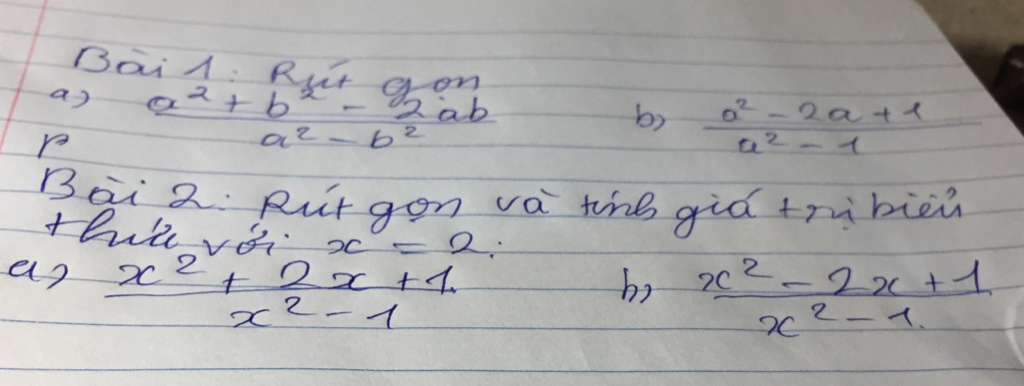 Bài 1: Rút gọn
a) (a² + b² - 2ab)/(a² - b²) b) (a² - 2a + 1)/(a² - 1)
Bài 2: Rút gọn và tính giá trị biểu
thức với x = 2:
a) (x² + 2x + 1)/(x² - 1) b) (x² - 2x + 1)/(x² - 1)